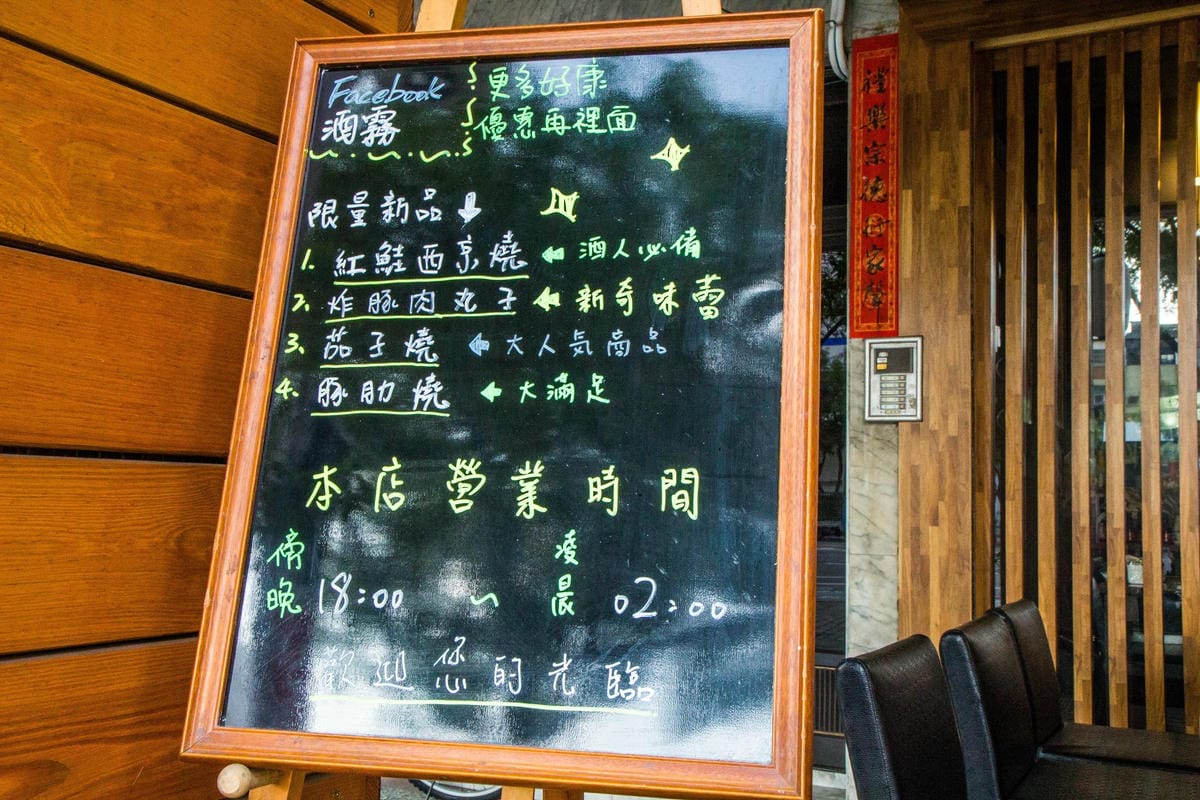 Facebook
酒霧
更多好康
優惠再裡面
限量新品
1. 紅鮭西京燒 酒人必備
2. 炸豚肉丸子 新奇味蕾
3. 茄子燒 大人氣商品
4. 豚肋燒 大滿足
本店營業時間
傍晚 18:00 ~ 凌晨 02:00
歡迎您的光臨
禮樂宗德行家聲